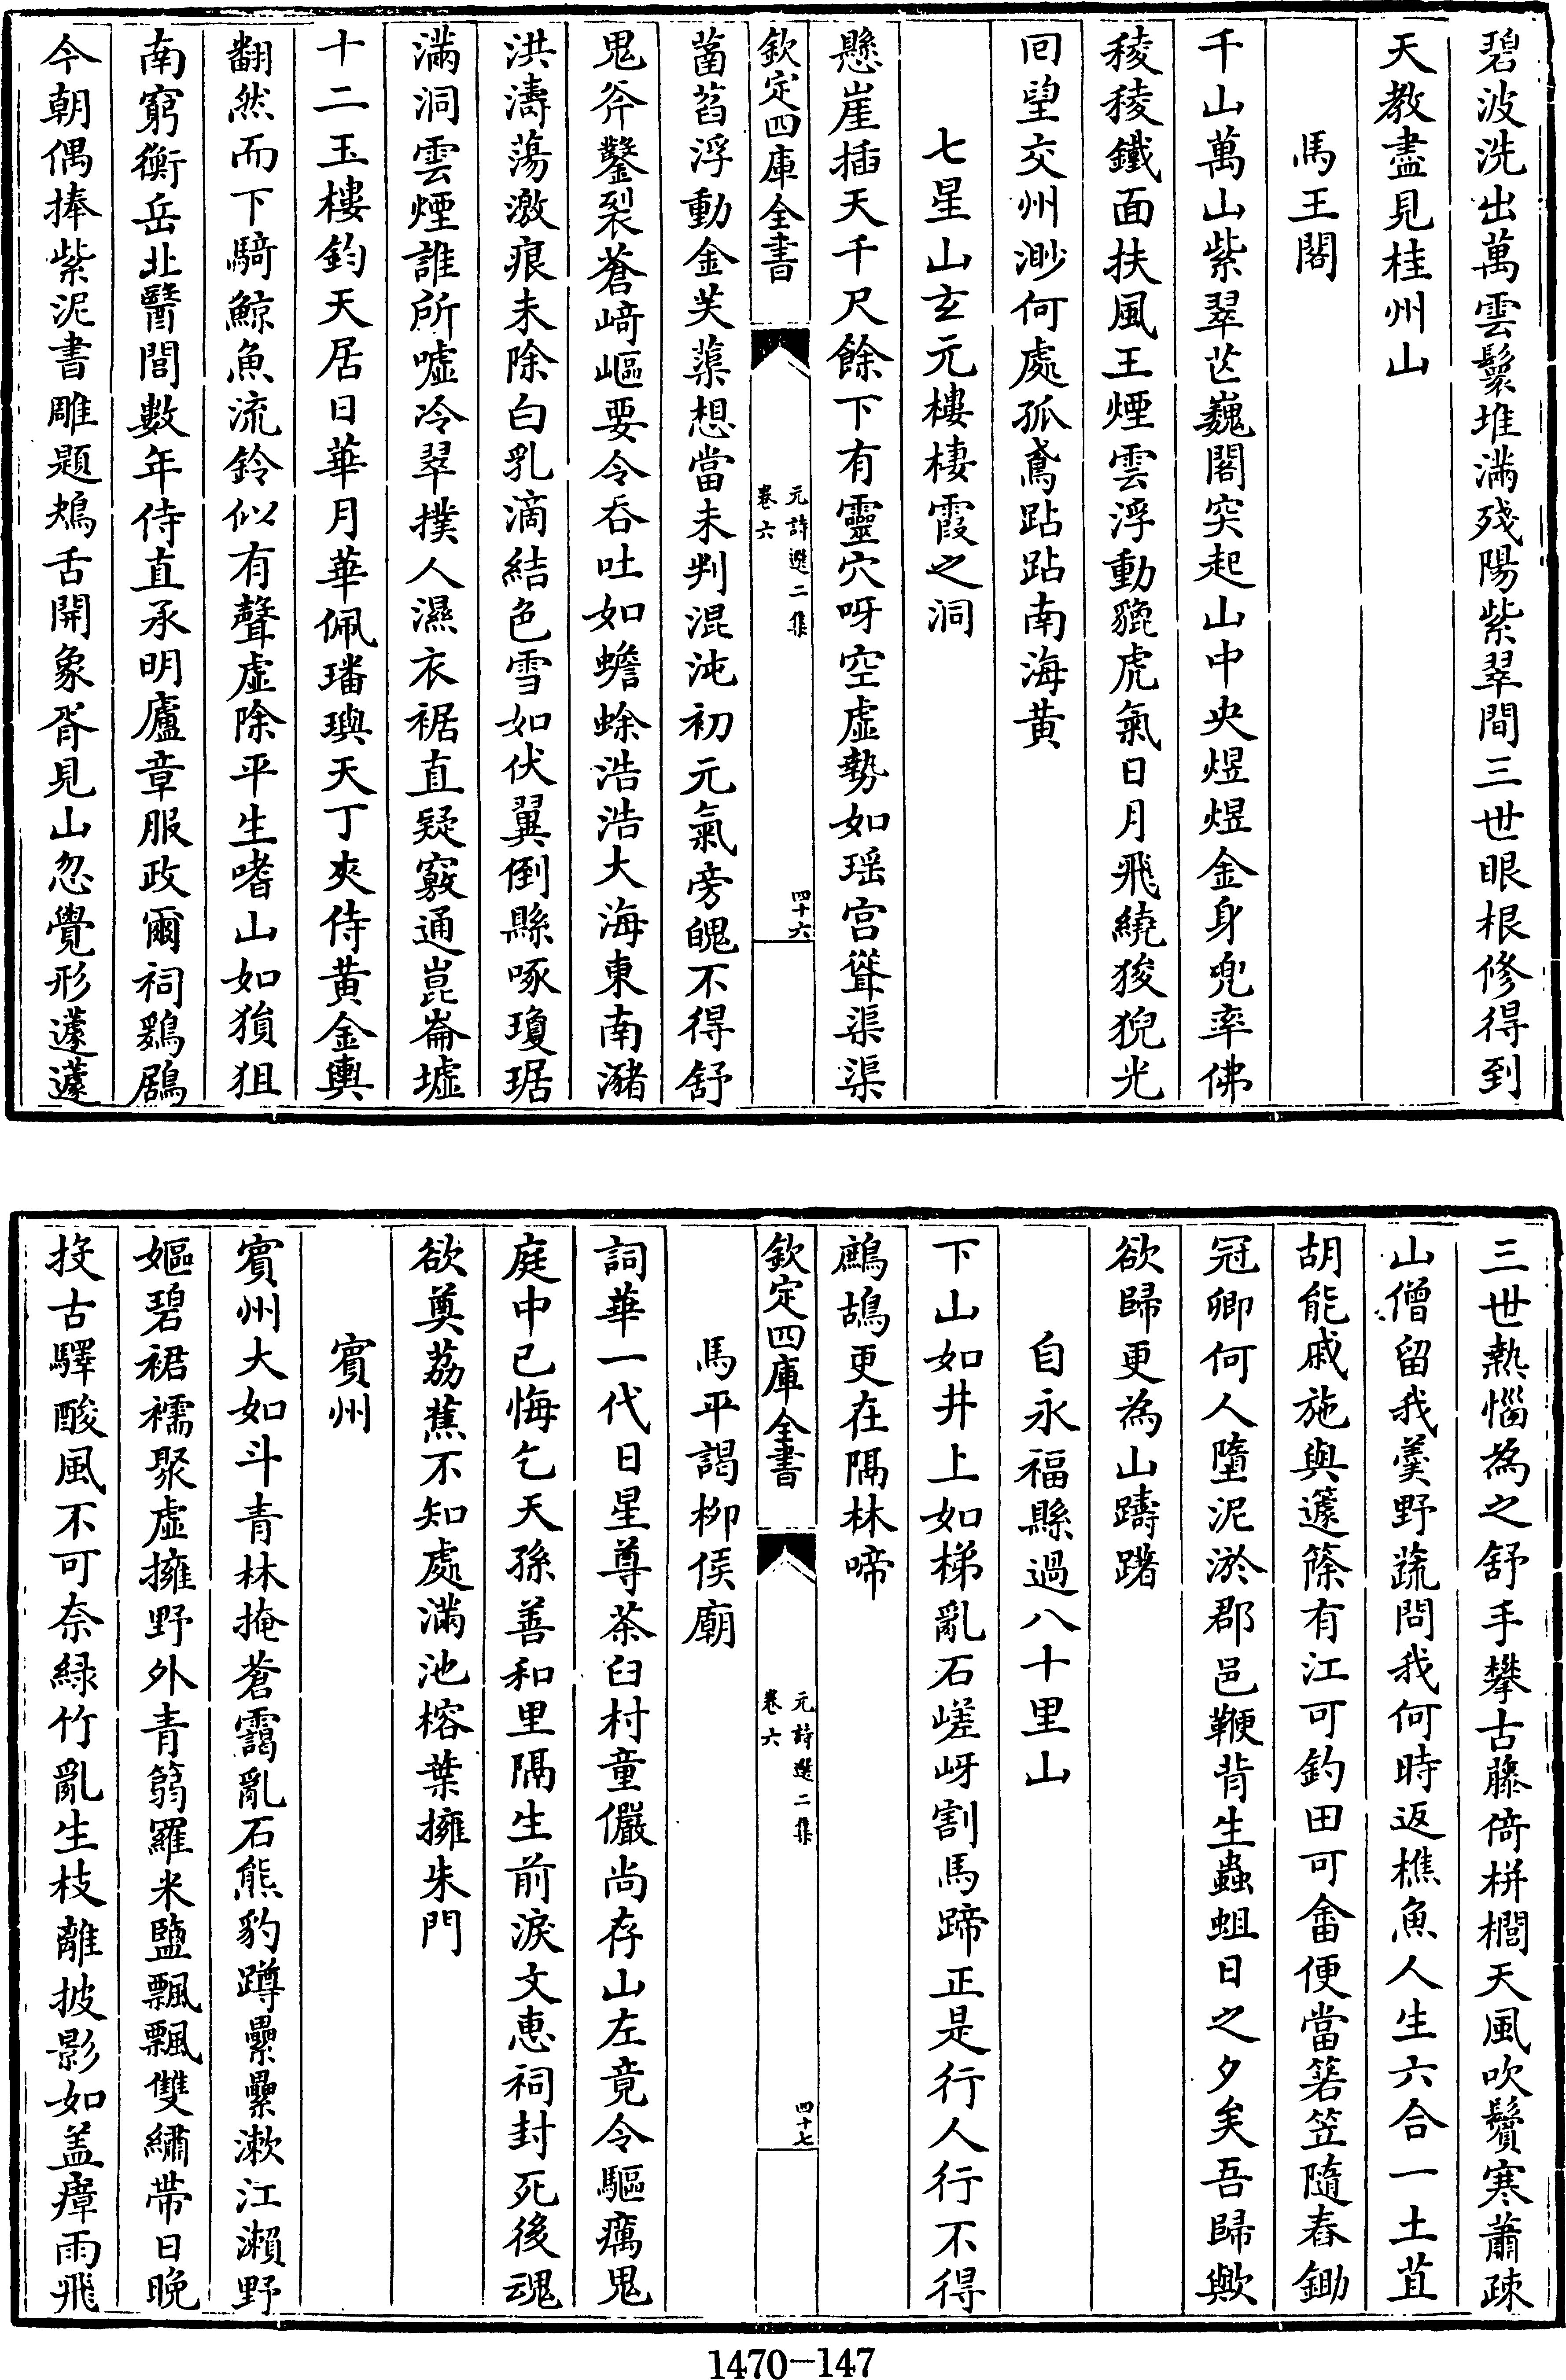 碧波洗出萬雲鬟堆滿殘陽紫翠間三世眼根修得到
天教盡見桂州山
馬王閣
千山萬山紫翠芒巍閣突起山中央煜煜金身兜率佛
稜稜鐵面扶風王煙雲浮動貔虎氣日月飛繞狻猊光
回望交州渺何處孤鳶跕跕南海黃
七星山玄元樓棲霞之洞
懸崖插天千尺餘下有靈穴呀空虛勢如瑶宮聳渠渠
欽定四庫全書
元詩選二集
卷六
四十六
菡萏浮動金芙蕖想當未判混沌初元氣旁魄不得舒
鬼斧鑿裂蒼崎嶇要令吞吐如蟾蜍浩浩大海東南瀦
洪濤蕩激痕未除白乳滴結色雪如伏翼倒縣啄瓊琚
滿洞雲煙誰所噓冷翠撲人濕衣裾直疑竅通崑崙墟
十二玉樓鈞天居日華月華佩璠璵天丁夾侍黃金輿
翻然而下騎鯨魚流鈴似有聲虛除平生嗜山如狙狙
南窮衡岳北醫閭數年侍直承明廬章服政爾祠鷄鶋
今朝偶捧紫泥書雕題鴂舌開象胥見山忽覺形蘧蘧
三世熱惱為之舒手攀古藤倚栟櫚天風吹鬢寒蕭疎
山僧留我羹野蔬問我何時返樵魚人生六合一土苴
胡能戚施與籧篨有江可釣田可畬便當箬笠隨舂鋤
冠卿何人墮泥淤郡邑鞭背生蟲蛆日之夕矣吾歸歟
欲歸更為山躊躇
自永福縣過八十里山
下山如井上如梯亂石嵯岈割馬蹄正是行人行不得
鷓鴣更在隔林啼
欽定四庫全書
元詩選二集
卷六
四十七
馬平謁柳侯廟
詞華一代日星尊茶臼村童儼尚存山左竟令驅癘鬼
庭中已悔乞天孫善和里隔生前淚文惠祠封死後魂
欲奠荔蕉不知處滿池榕葉擁朱門
賓州
賓州大如斗青林掩蒼靄亂石熊豹蹲纍纍漱江瀨野
嫗碧裙襦聚虛擁野外青篛羅米鹽飄飄雙繡帶日晚
投古驛酸風不可奈緑竹亂生枝離披影如盖瘴雨飛
1470-147